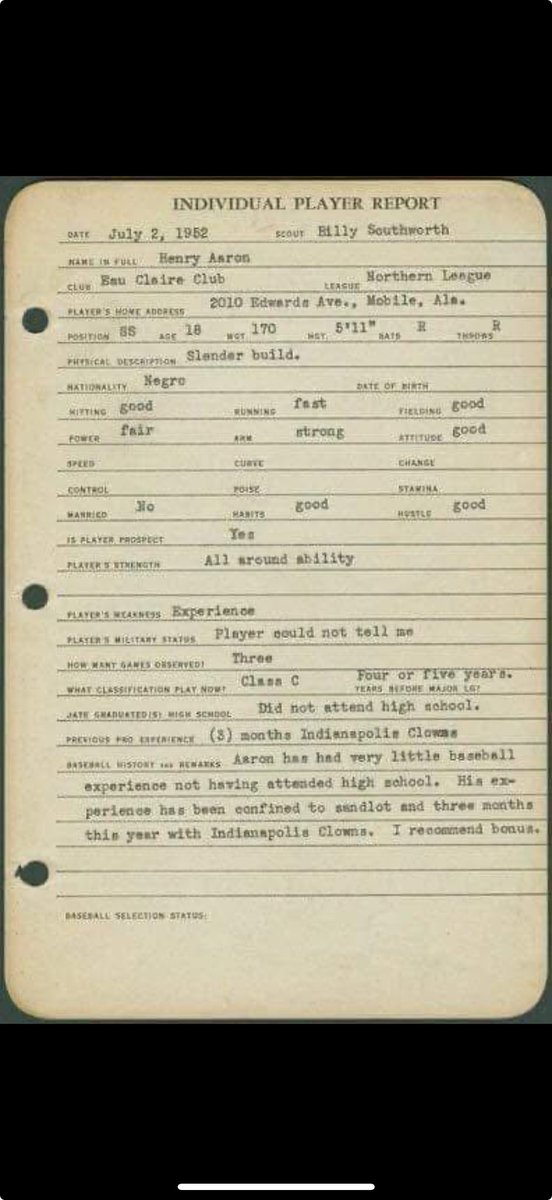 INDIVIDUAL PLAYER REPORT
DATE July 2, 1952 SCOUT Billy Southworth
NAME IN FULL Henry Aaron
CLUB Eau Claire Club LEAGUE Northern League
PLAYER'S HOME ADDRESS 2010 Edwards Ave., Mobile, Ala.
POSITION SS AGE 18 WGT. 170 HGT. 5'11" BATS R THROWS R
PHYSICAL DESCRIPTION Slender build.
NATIONALITY Negro DATE OF BIRTH
HITTING good RUNNING fast FIELDING good
POWER fair ARM strong ATTITUDE good
SPEED CURVE CHANGE
CONTROL POISE STAMINA
MARRIED No HABITS good HUSTLE good
IS PLAYER PROSPECT Yes
PLAYER'S STRENGTH All around ability
PLAYER'S WEAKNESS Experience
PLAYER'S MILITARY STATUS Player could not tell me
HOW MANY GAMES OBSERVED? Three
WHAT CLASSIFICATION PLAY NOW? Class C YEARS BEFORE MAJOR LG? Four or five years.
DATE GRADUATED(S) HIGH SCHOOL Did not attend high school.
PREVIOUS PRO EXPERIENCE (3) months Indianapolis Clowns
BASEBALL HISTORY AND REMARKS Aaron has had very little baseball
experience not having attended high school. His ex-
perience has been confined to sandlot and three months
this year with Indianapolis Clowns. I recommend bonus.
BASEBALL SELECTION STATUS: